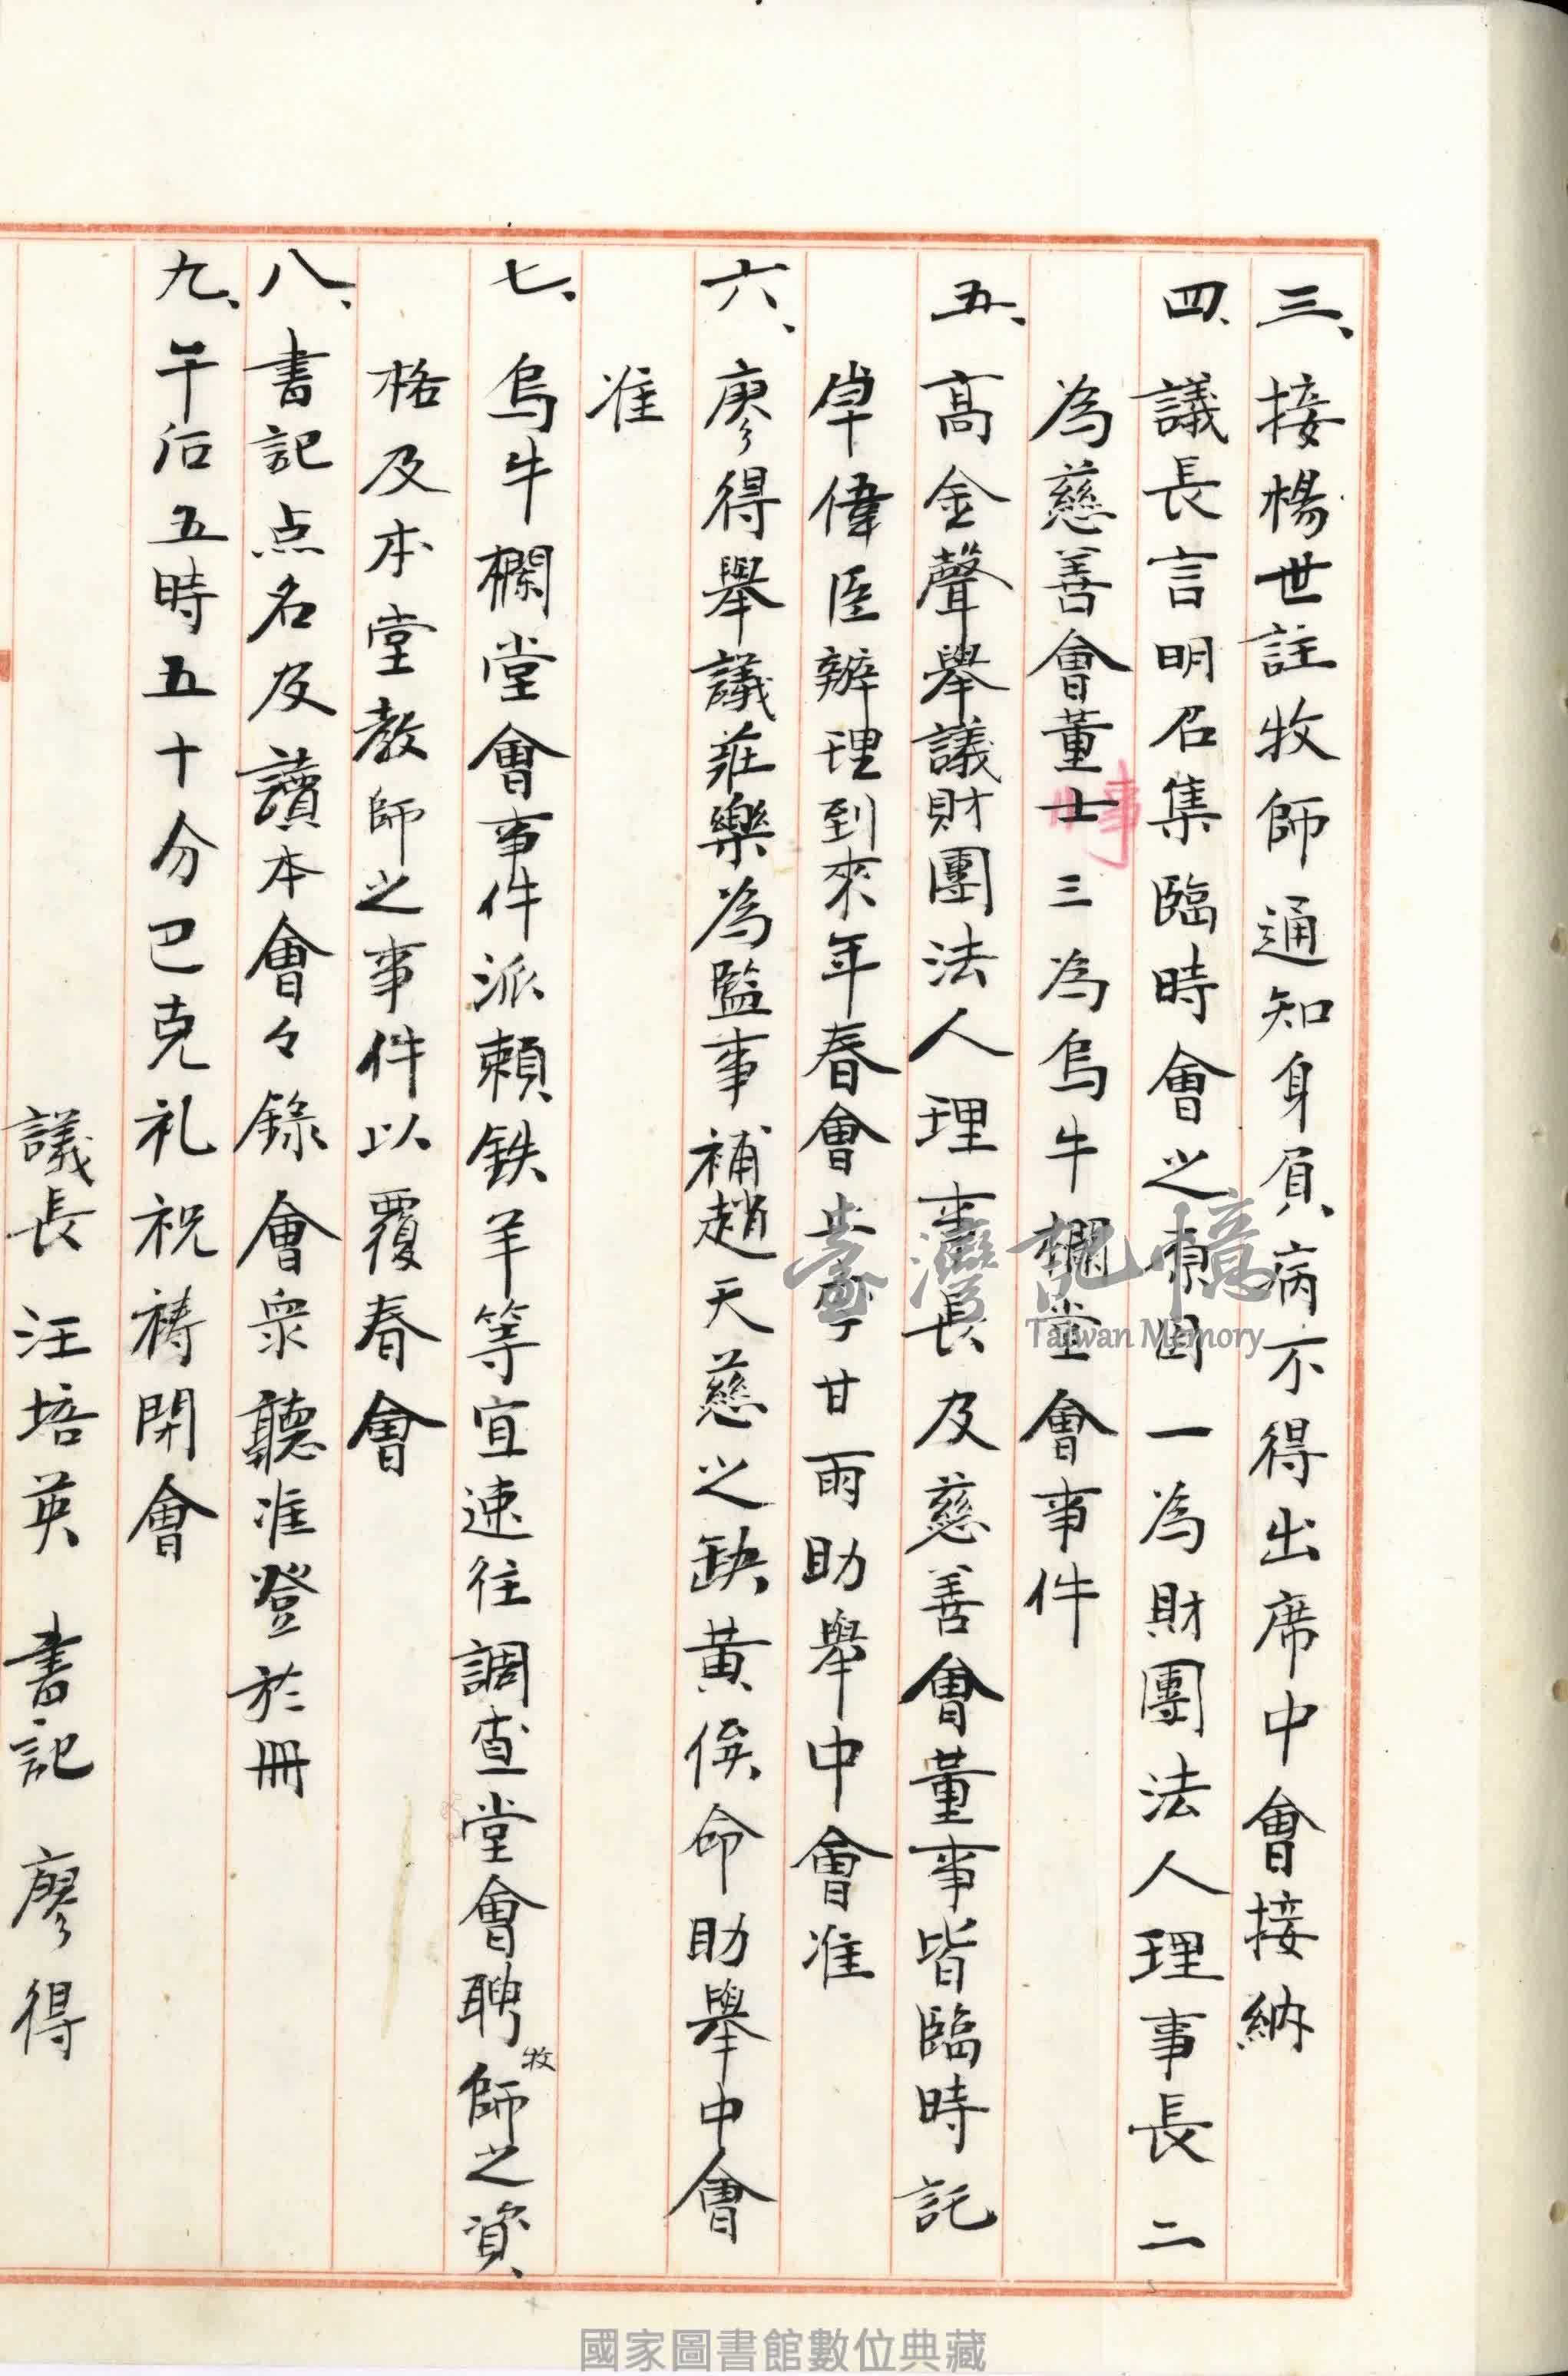 三、接楊世註牧師通知身負病不得出席中會接納
四、議長言明召集臨時會之原因一為財團法人理事長二
為慈善會董士三為烏牛欄堂會事件
事
五、高金聲舉議財團法人理事長及慈善會董事皆臨時託
偉臣辦理到來年春會止李甘雨助舉中會准
六、廖得舉議莊樂為監事補趙天慈之缺黃俟命助舉中會
准
七、烏牛欄堂會事件派賴鉄羊等宜速往調查堂會聘牧師之資
格及本堂教師之事件以覆春會
八、書記点名及讀本會々錄會眾聽准登於冊
九、午后五時五十分巴克礼祝禱閉會
議長 汪培英 書記 廖得
臺灣記憶
Taiwan Memory
國家圖書館數位典藏